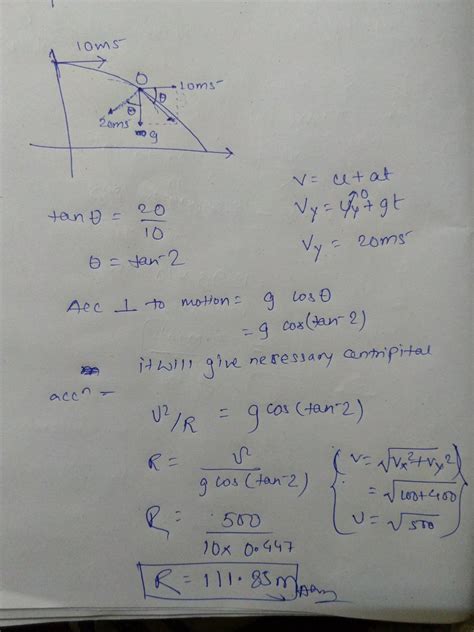 10ms
O
10ms
θ
θ
20ms
mg
V = u + at
tanθ = 20/10
Vy = uy⁰ + gt
θ = tan-2
Vy = 20ms
Acc ⊥ to motion = g cosθ
= g cos(tan-2)
it will give necessary centripital
accⁿ =
V²/R = g cos(tan-2)
R = v²/g cos(tan-2)
V = √Vx²+Vy²
= √100+400
V = √500
R = 500/10 x 0.447
R = 111.85m